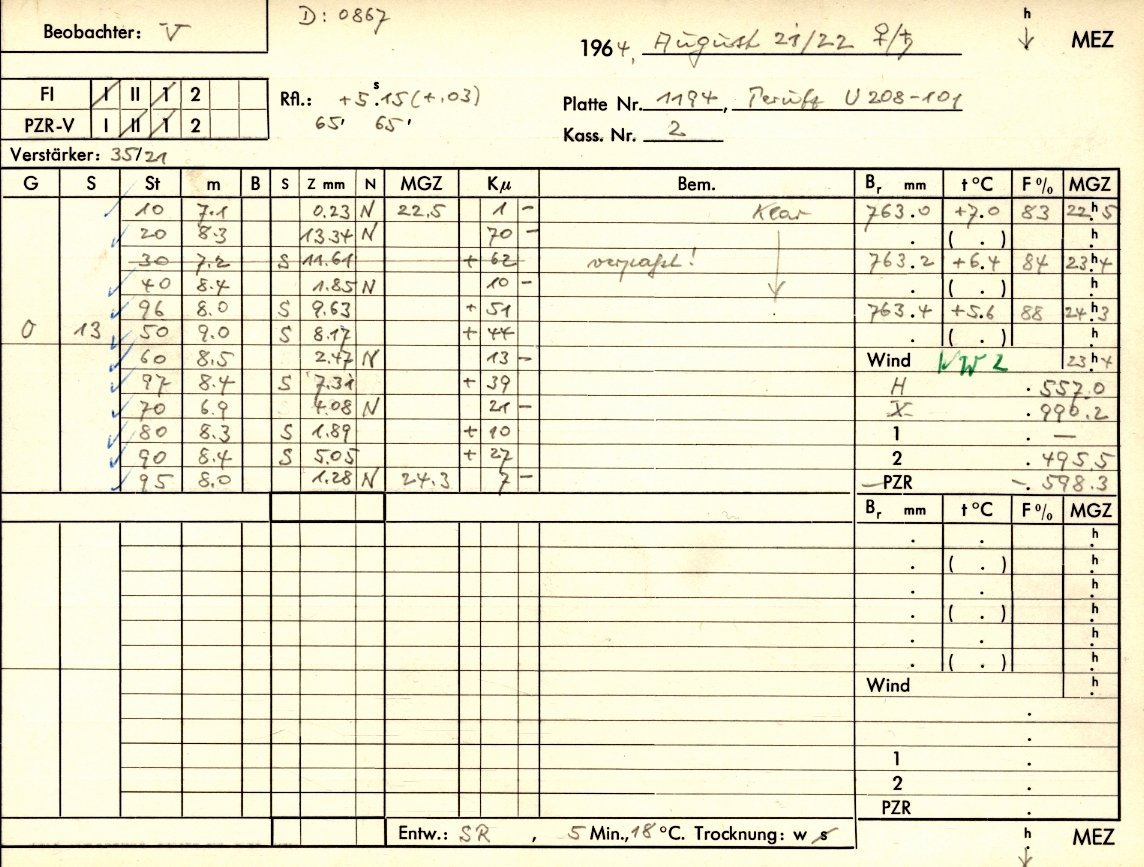 D: 0867
Beobachter: V
h
1964, August 21/22 ♀/♄ ↓ MEZ
FI I II 1 2 Rfl.: +5ˢ.15 (+.03)
65' 65' Platte Nr. 1194, U 208-101
PZR-V I II 1 2 Kass. Nr. 2
Verstärker: 35/21
G S St m B S Z mm N MGZ Kμ Bem. Br mm t°C F% MGZ
✓ 10 7.1 0.23 N 22.5 1 - Klar 763.0 +7.0 83 22ʰ.5
✓ 20 8.3 13.34 N 70 - . ( . ) h.
30 7.2 S 11.61 + 62 verpaßt! 763.2 +6.4 84 23ʰ.4
✓ 40 8.4 1.85 N 10 - ↓ . ( . ) h.
✓ 96 8.0 S 9.63 + 51 763.4 +5.6 88 24ʰ.3
0 13 ✓ 50 9.0 S 8.17 + 44 . ( . ) h.
✓ 60 8.5 2.47 N 13 - Wind 23ʰ.4
✓ 97 8.4 S 7.31 + 39 H . 557.0
✓ 70 6.9 4.08 N 21 - X . 990.2
✓ 80 8.3 S 1.89 + 10 1 . —
✓ 90 8.4 S 5.05 + 27 2 . 495.5
✓ 95 8.0 1.28 N 24.3 7 - PZR -. 598.3
Br mm t°C F% MGZ
. . h.
. ( . ) h.
. . h.
. ( . ) h.
. . h.
. ( . ) h.
Wind h.
.
.
1 .
2 .
PZR .
Entw.: SR , 5 Min., 18 °C. Trocknung: w s h
↓ MEZ